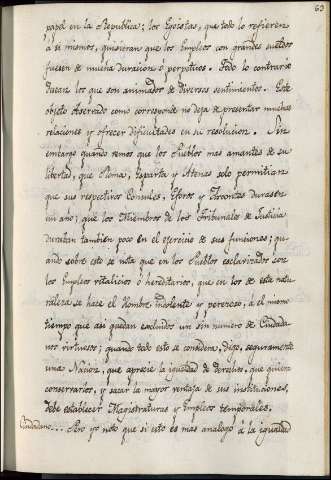 63
papel en la Republica; los Egoistas, que todo lo refieren
á si mismos, quisieran que los Empleos con grandes sueldos
fuesen de mucha duracion ó perpetuos. Todo lo contrario
desean los que son animados de diversos sentimientos. Este
objeto observado como corresponde no deja de presentar muchas
relaciones y ofrecer dificultades en su resolucion. Sin
embargo quando vemos que los Pueblos mas amantes de su
libertad, que Roma, Esparta y Atenas solo permitian
que sus respectivos Consules, Eforos y Arcontas durasen
un año; que los Miembros de los Tribunales de Justicia
duraban tambien poco en el exercicio de sus funciones; qu-
ando sobre esto se nota que en los Pueblos esclavizados con
los Empleos vitalicios ó hereditarios, que en los de esta natu-
raleza se hace el Hombre indolente y perezoso, á el mismo
tiempo que asi quedan excluidos un sin numero de Ciudada-
nos virtuosos; quando todo esto se considera, digo, seguramente
una Nacion, que aprecie la igualdad de derechos, que quiera
conservarlos, y sacar la mayor ventaja de sus instituciones,
debe establecer Magistraturas y Empleos temporales.
Ciudadano... Pero yo noto que si esto es mas analogo á la igualdad